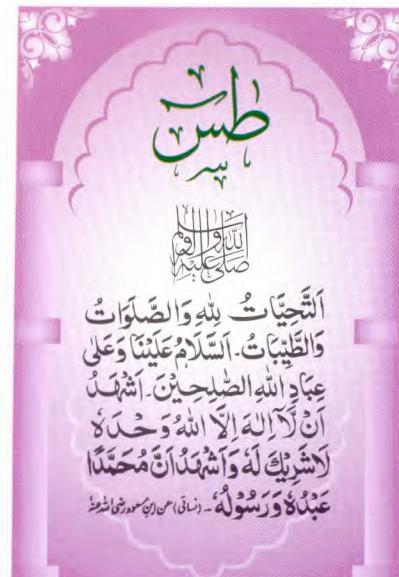 طس
صلی اللہ علیہ والہ وسلم
اَلتَّحِيَّاتُ لِلّٰهِ وَالصَّلَوَاتُ
وَالطَّيِّبَاتُ۔ اَلسَّلَامُ عَلَيْنَا وَعَلٰى
عِبَادِ اللّٰهِ الصّٰلِحِيْنَ۔ اَشْهَدُ
اَنْ لَّآ اِلٰهَ اِلَّا اللّٰهُ وَحْدَهٗ
لَاشَرِيْكَ لَهٗ وَاَشْهَدُ اَنَّ مُحَمَّدًا
عَبْدُهٗ وَرَسُوْلُهٗ۔ (نسائی) عن ابن مسعود رضی اللہ عنہ